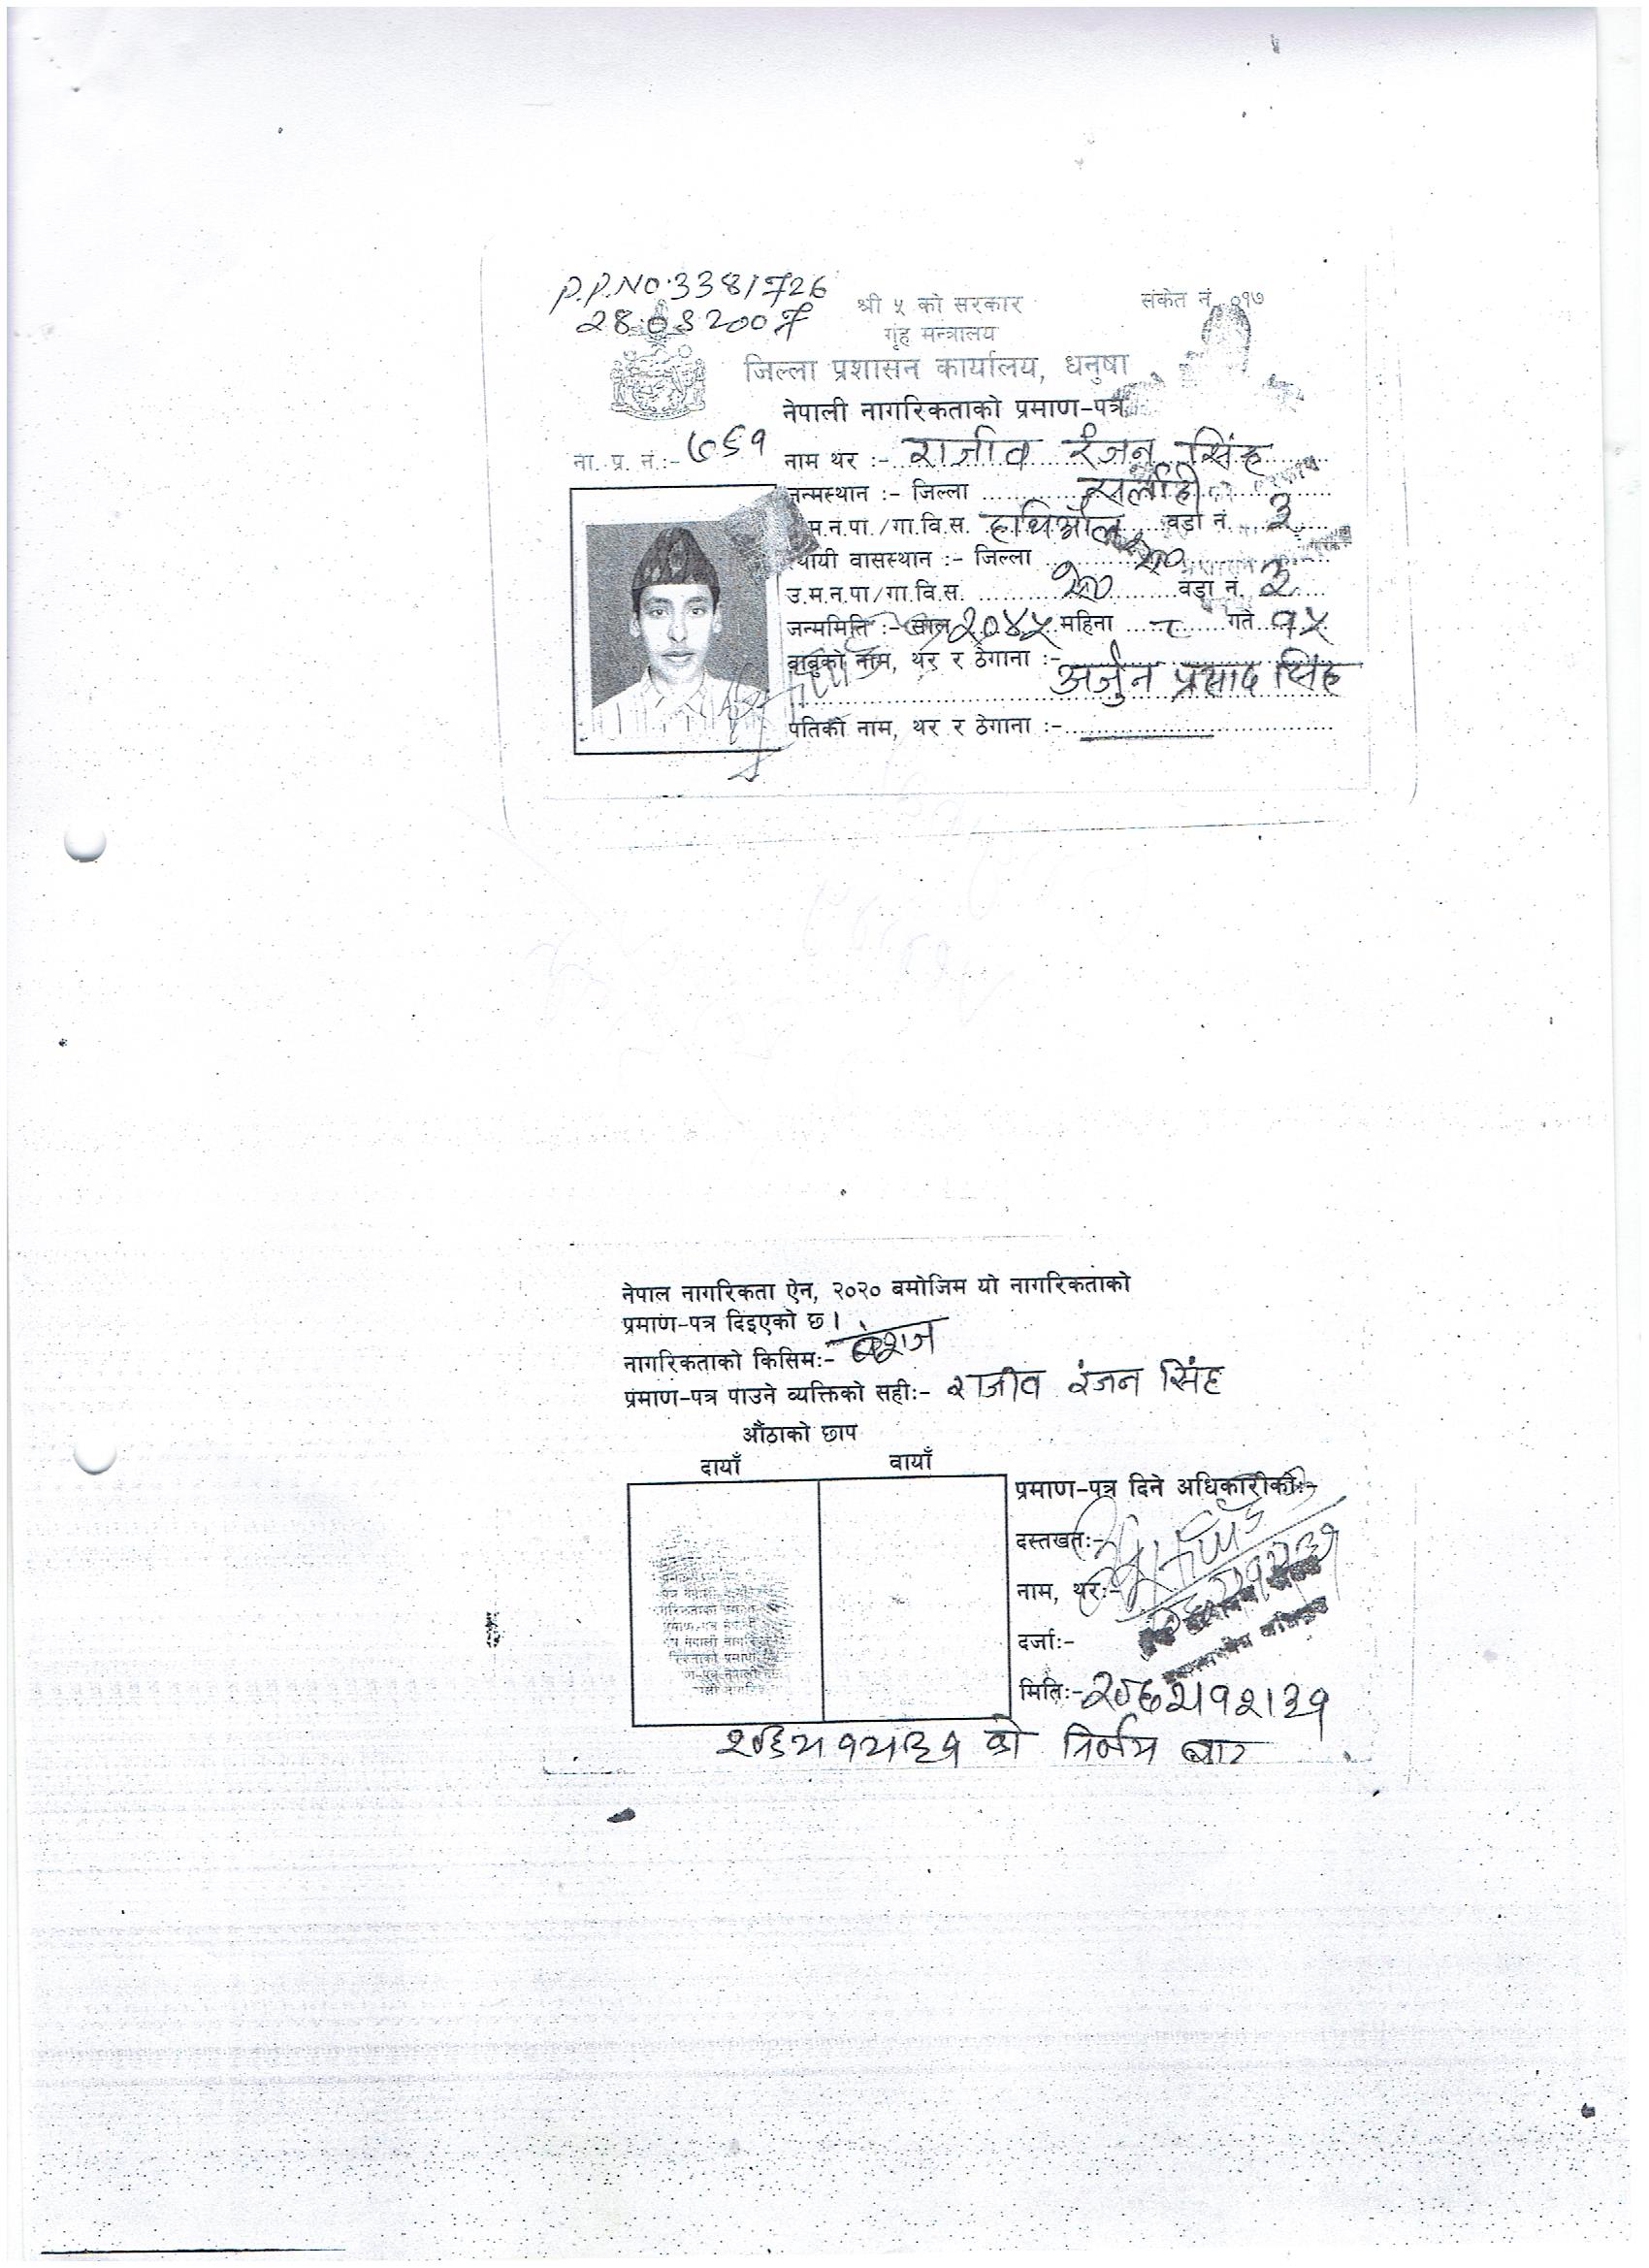 P.P.NO.3381726
28.03.2007
श्री ५ को सरकार
संकेत नं. ०१७
गृह मन्त्रालय
जिल्ला प्रशासन कार्यालय, धनुषा
नेपाली नागरिकताको प्रमाण-पत्र
ना. प्र. नं.:- ७६१
नाम थर :- राजीव रंजन सिंह
जन्मस्थान :- जिल्ला सर्लाही
म.न.पा./गा.वि.स. हथिऔल वडा नं. ३
स्थायी वासस्थान :- जिल्ला
उ.म.न.पा/गा.वि.स. वडा नं. ३
जन्ममिति :- साल २०४५ महिना ८ गते १५
बाबुको नाम, थर र ठेगाना :-
अर्जुन प्रसाद सिंह
पतिको नाम, थर र ठेगाना :-
नेपाल नागरिकता ऐन, २०२० बमोजिम यो नागरिकताको
प्रमाण-पत्र दिइएको छ।
नागरिकताको किसिम:- बंशज
प्रमाण-पत्र पाउने व्यक्तिको सही:- राजीव रंजन सिंह
औंठाको छाप
दायाँ वायाँ
प्रमाण-पत्र दिने अधिकारीको:-
दस्तखत:-
नाम, थर:-
दर्जा:-
मिति:-
को निर्णय बाट